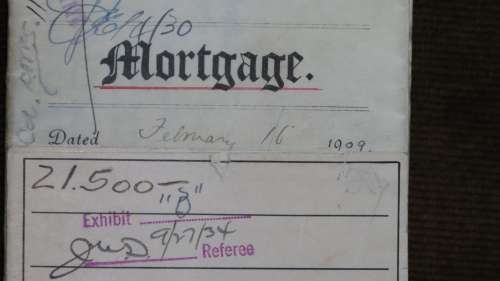 4/30
Mortgage.
Dated February 16 1909.
21.500—
Exhibit "8"
9/27/34
Referee